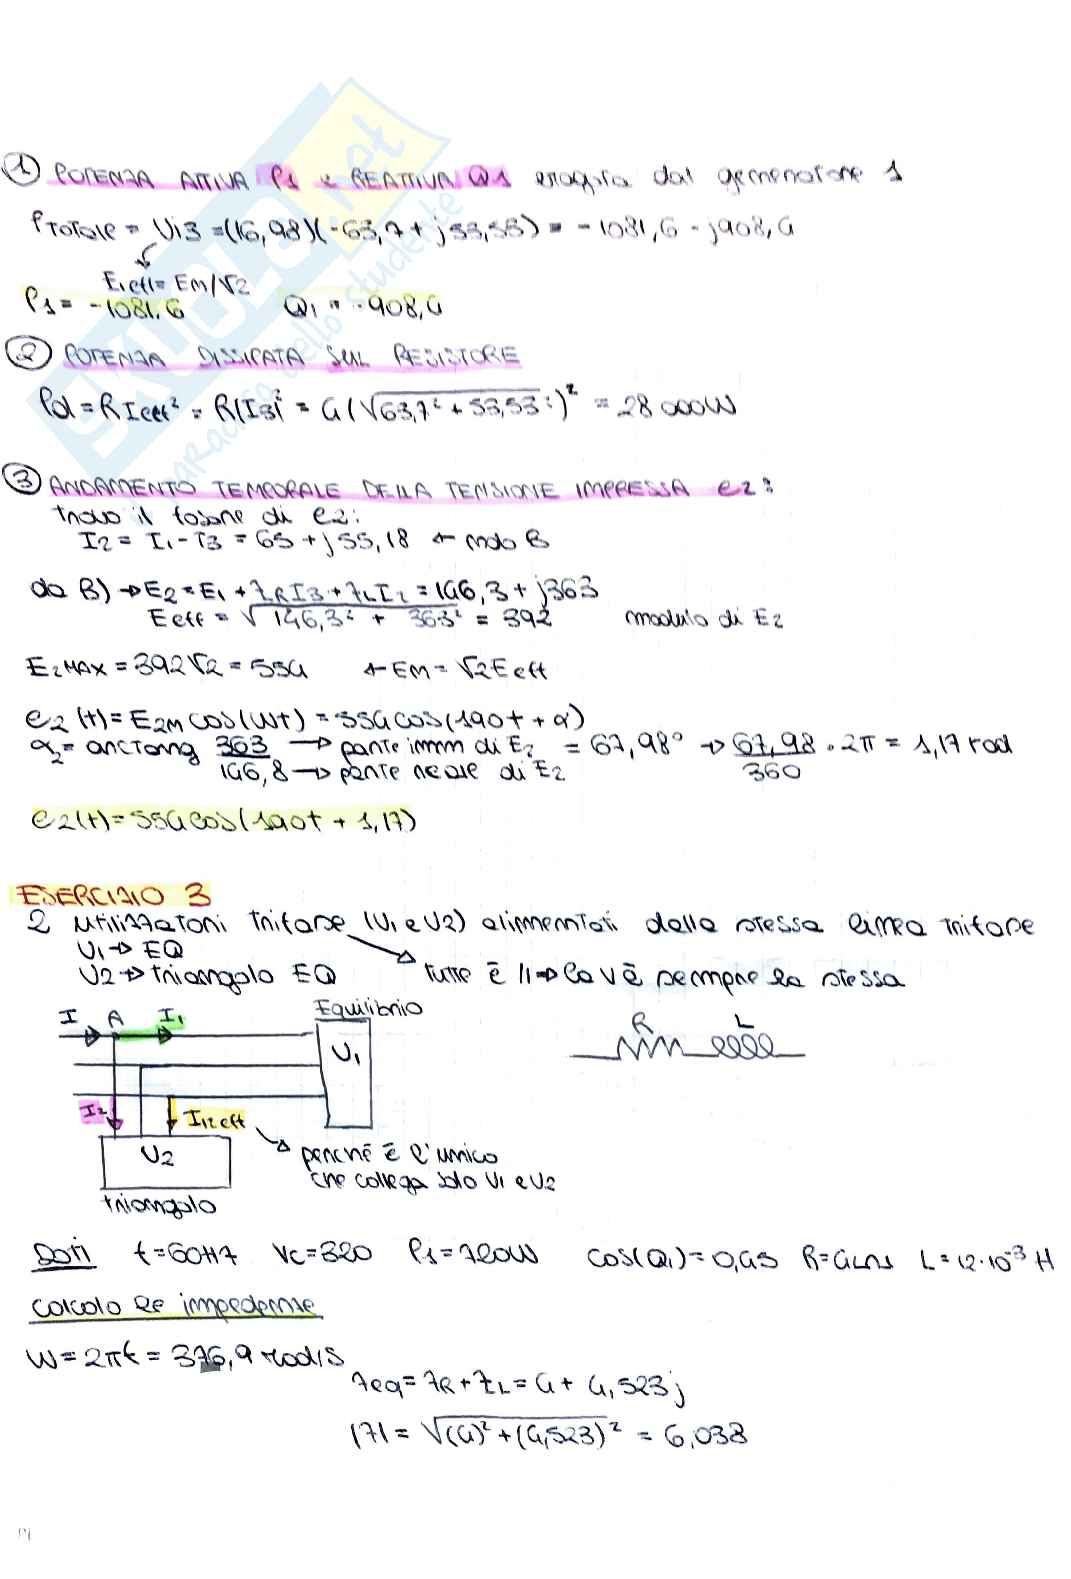 ① POTENZA ATTIVA P1 e REATTIVA Q1 erogata dal generatore 1
PTOTALE = Vi3 = (16,98)(-63,7 + j53,53) = -1081,6 - j908,4
E1eff = Em/√2
P1 = -1081.6 Q1 = -908,4
② POTENZA DISSIPATA SUL RESISTORE
Pd = R Ieff² = R|I3|² = 4(√63,7² + 53,53²)² = 28 000W
③ ANDAMENTO TEMPORALE DELLA TENSIONE IMPRESSA e2:
trovo il fasore di e2:
I2 = I1 - I3 = 65 + j55,18 ← nodo B
da B) → E2 = E1 + ZR I3 + ZL I2 = 146,3 + j363
Eeff = √146,3² + 363² = 392 modulo di E2
E2MAX = 392√2 = 554 ← EM = √2 Eeff
e2(t) = E2M cos(wt) = 554 cos(190t + α)
α2 = arctang 363 → parte imm di E2 = 67,98° → 67,98 · 2π = 1,17 rad
146,8 → parte reale di E2 360
e2(t) = 554 cos(190t + 1,17)
ESERCIZIO 3
2 utilizzatori trifase (U1 e U2) alimentati dalla stessa linea trifase
U1 → EQ
U2 → triangolo EQ tutte è // → la V è sempre la stessa
Equilibrio
I A I1 R L
U1
I2 I12 eff
U2 perché è l'unico
che collega solo U1 e U2
triangolo
Dati f=60Hz Vc=320 P1=720W cos(Q1)=0,45 R=4 L=12·10⁻³ H
calcolo le impedenze
W = 2πf = 376,9 rad/s
Zeq = ZR + ZL = 4 + 4,523j
|Z| = √(4)² + (4,523)² = 6,038
SKUOLA.net